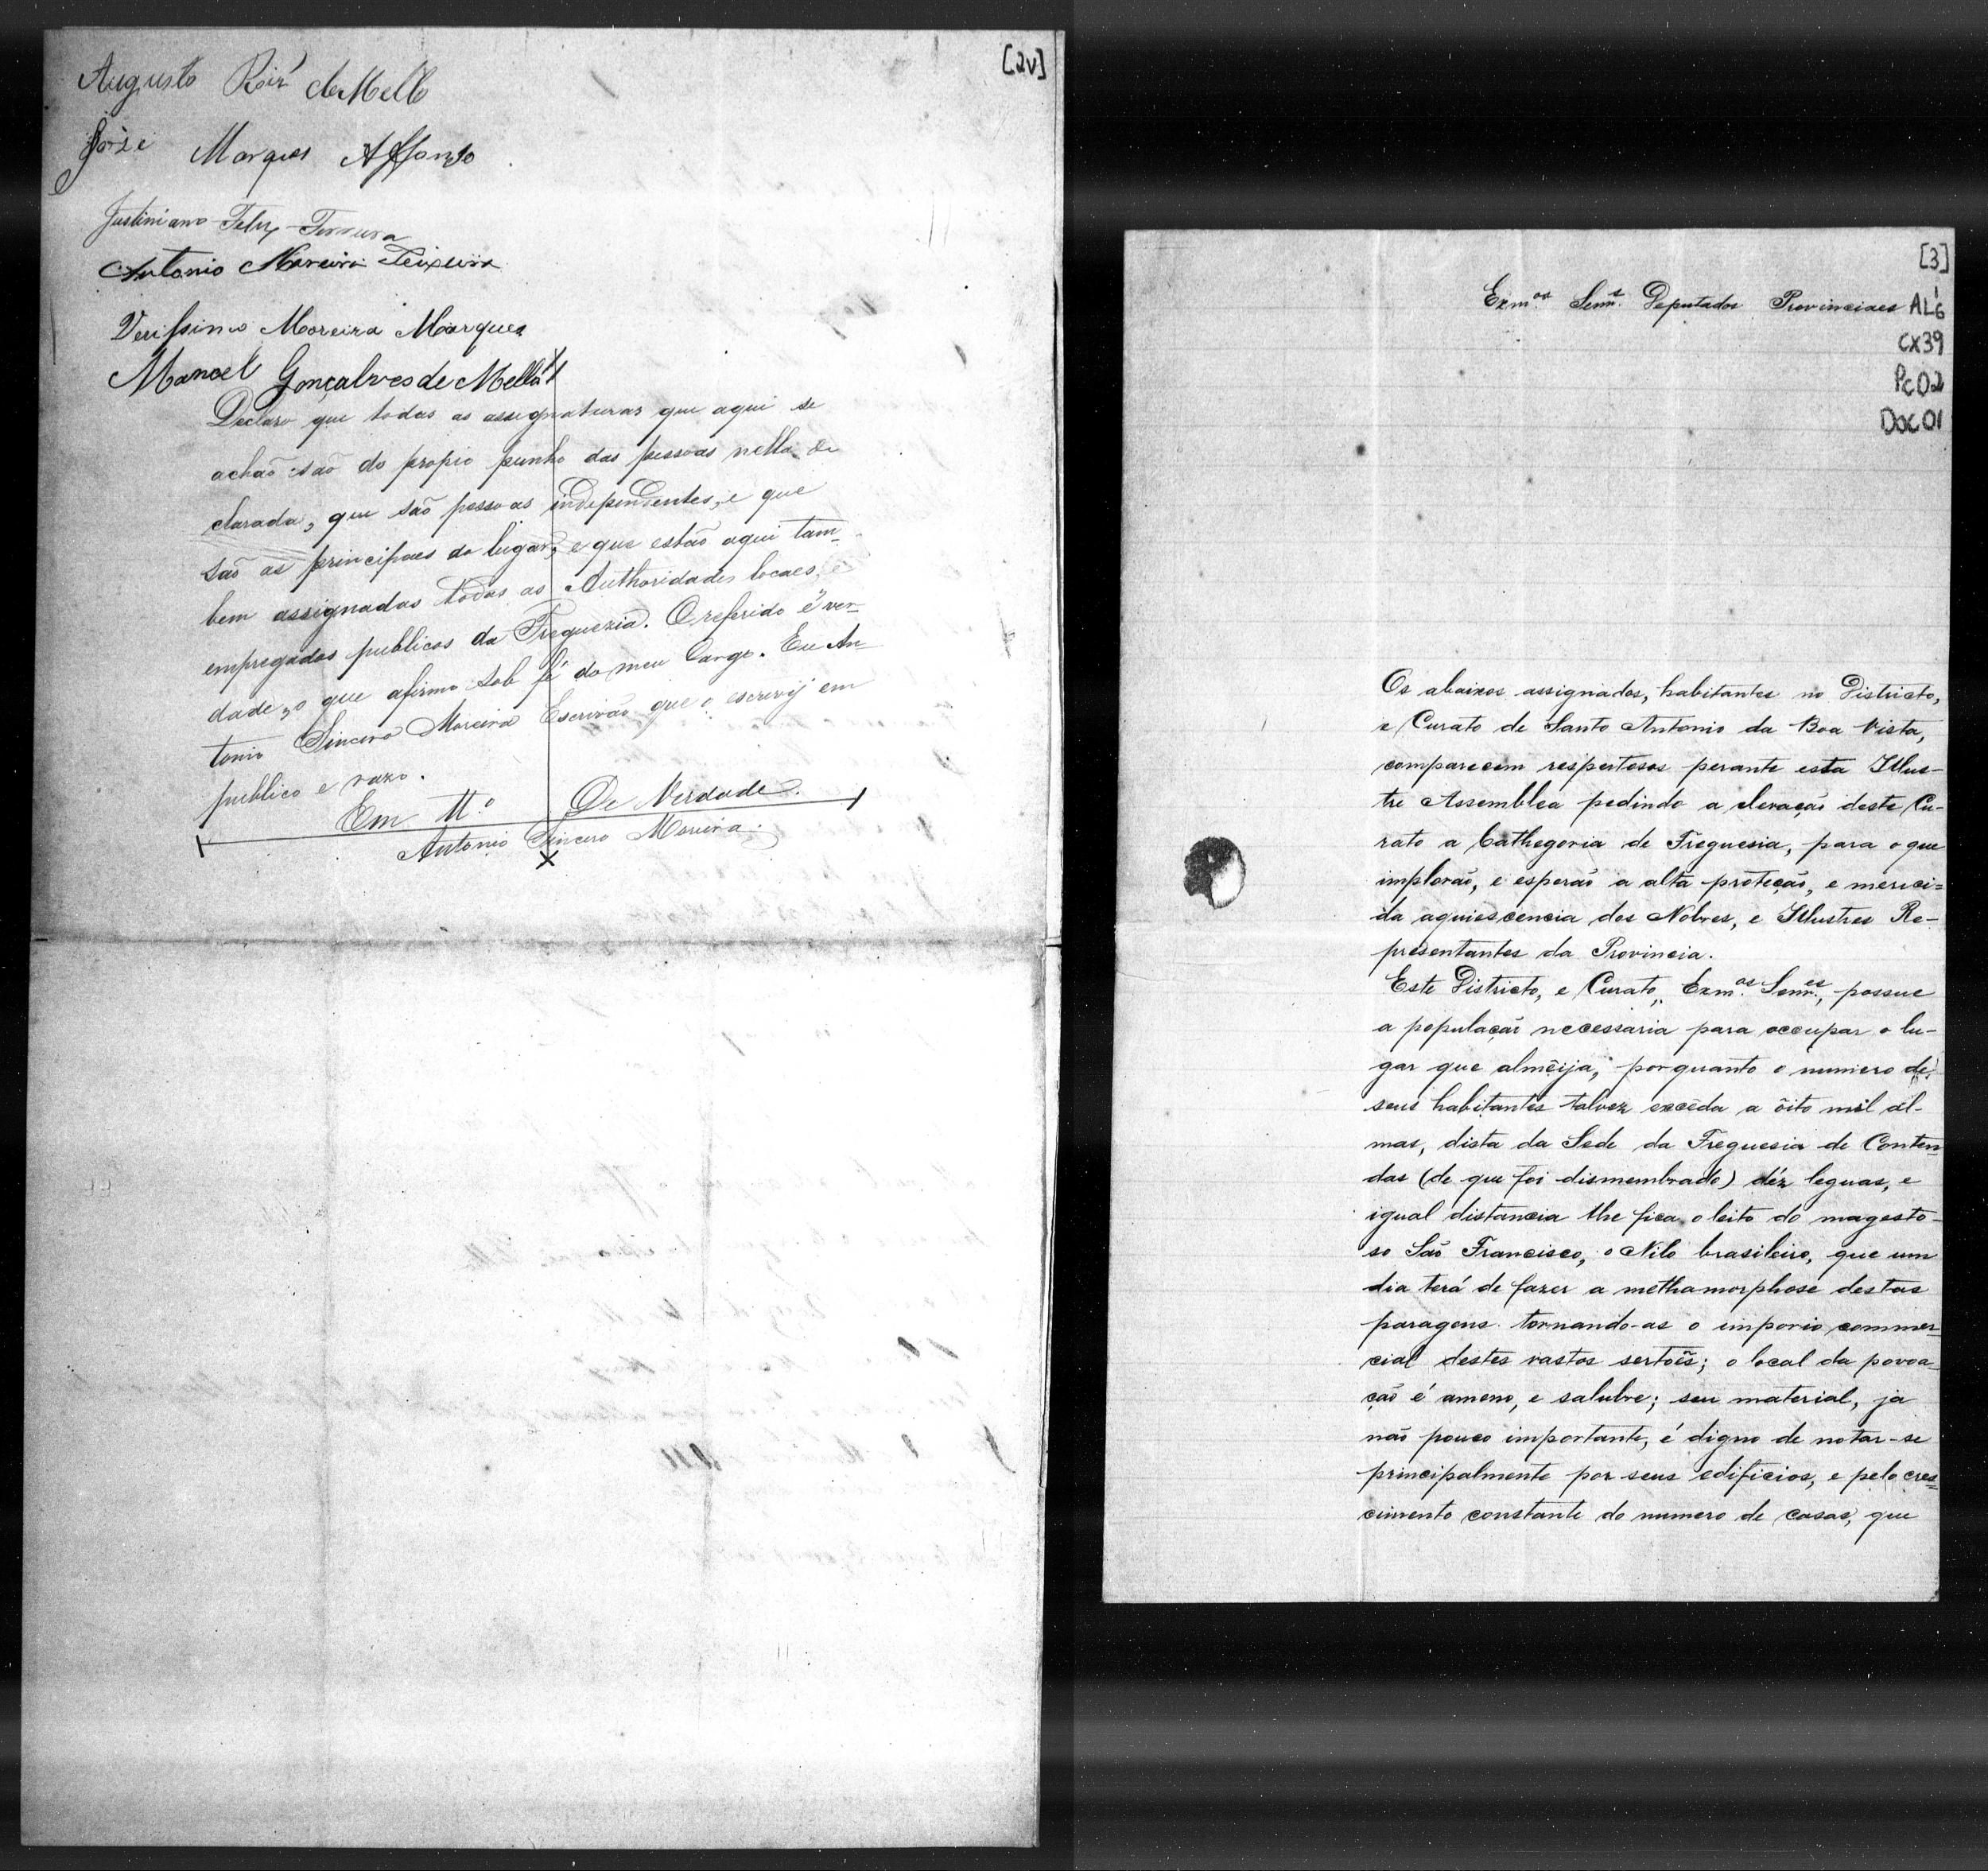 [2v]
Augusto Roiz de Mello
José Marques Affonso
Justiniano Felix Ferreira
Antonio Moreira Teixeira
Verissimo Moreira Marques
Manoel Gonçalves de Mello
Declaro que todas as assignaturas que aqui se
achão são do propio punho das pessoas nella de
clarada, que são pessoas independentes, e que
são as principaes do lugar, e que estão aqui tam-
bem assignadas todas as Authoridades locaes, e
empregados publicos da Freguezia. O referido é ver-
dade, o que afirmo sob fé do meu Cargo. Eu An
tonio Sincero Moreira Escrivão que o escrevij em
publico e razo.
Em tt.º De Verdade.
Antonio Sincero Moreira
[3]
Exm.os Senr.s Deputados Provinciaes
AL6
CX39
PC02
DOC01
Os abaixos assignados, habitantes no Districto,
e Curato de Santo Antonio da Boa Vista,
comparecem respeitosos perante esta Illus-
tre Assemblea pedindo a elevação deste Cu-
rato a Cathegoria de Freguesia, para o que
implorão, e esperão a alta proteção, e mereci=
da aquiescencia dos Nobres, e Illustres Re-
presentantes da Provincia.
Este Districto, e Curato, Exm.os Senr.es, possue
a população necessaria para occupar o lu-
gar que almeija, porquanto o numero de
seus habitantes talvez exceda a oito mil al-
mas, dista da Sede da Freguesia de Conten
das (de que foi dismembrado) déz leguas, e
igual distancia lhe fica o leito do magesto-
so São Francisco, o Nilo brasileiro, que um
dia terá de fazer a methamorphose destas
paragens tornando-as o imporio commer-
cial destes vastos sertões; o local da povoa-
ção é ameno, e salubre; seu material, ja
não pouco importante, é digno de notar-se
principalmente por seus edificios, e pelo cres=
cimento constante do numero de casas, que